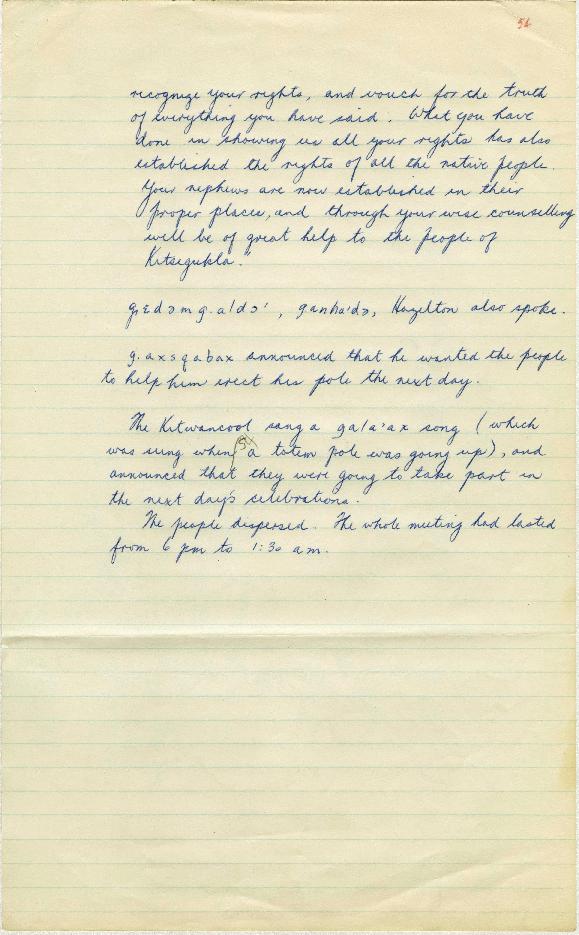 54
recognize your rights, and vouch for the truth
of everything you have said. What you have
done in showing us all your rights has also
established the rights of all the native people.
Your nephews are now established in their
proper places, and through your wise counselling
will be of great help to the people of
Kitsegukla."
gɛdəmg.a'ldə', ganha'də, Hazelton also spoke.
g.axsgabax announced that he wanted the people
to help him erect his pole the next day.
The Kitwancool sang a gala'ax song (which
was sung when a totem pole was going up), and
announced that they were going to take part in
the next day's celebrations.
The people dispersed. The whole meeting had lasted
from 6 pm to 1:30 am.